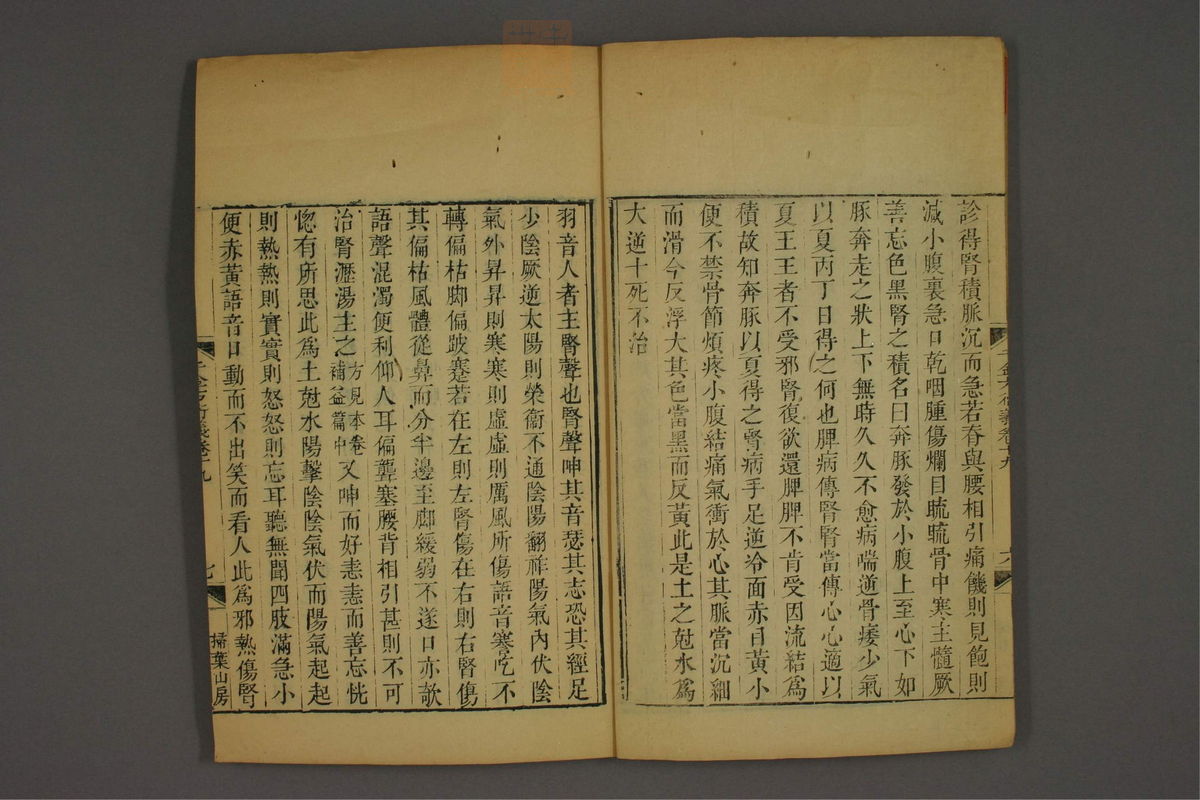 診得腎積脈沉而急若脊與腰相引痛饑則見飽則
減小腹裏急口乾咽腫傷爛目䀮䀮骨中寒主髓厥
善忘色黑腎之積名曰奔豚發於小腹上至心下如
豚奔走之狀上下無時久久不愈病喘逆骨痿少氣
以夏丙丁日得之何也脾病傳腎腎當傳心心適以
夏王王者不受邪腎復欲還脾脾不肯受因流結為
積故知奔豚以夏得之腎病手足逆冷面赤目黃小
便不禁骨節煩疼小腹結痛氣衝於心其脈當沉細
而滑今反浮大其色當黑而反黃此是土之尅水為
大逆十死不治
羽音人者主腎聲也腎聲呻其音瑟其志恐其經足
少陰厥逆太陽則榮衞不通陰陽翻祚陽氣內伏陰
氣外昇昇則寒寒則虛虛則厲風所傷語音蹇吃不
轉偏枯脚偏跛蹇若在左則左腎傷在右則右腎傷
其偏枯風體從鼻而分半邊至脚緩弱不遂口亦欹
語聲混濁便利仰人耳偏聾塞腰背相引甚則不可
治腎瀝湯主之方見本卷補益篇中又呻而好恚恚而善忘恍
惚有所思此為土尅水陽擊陰陰氣伏而陽氣起起
則熱熱則實實則怒怒則忘耳聽無聞四肢滿急小
便赤黃語音口動而不出笑而看人此為邪熱傷腎
千金方衍義卷十九
七
掃葉山房